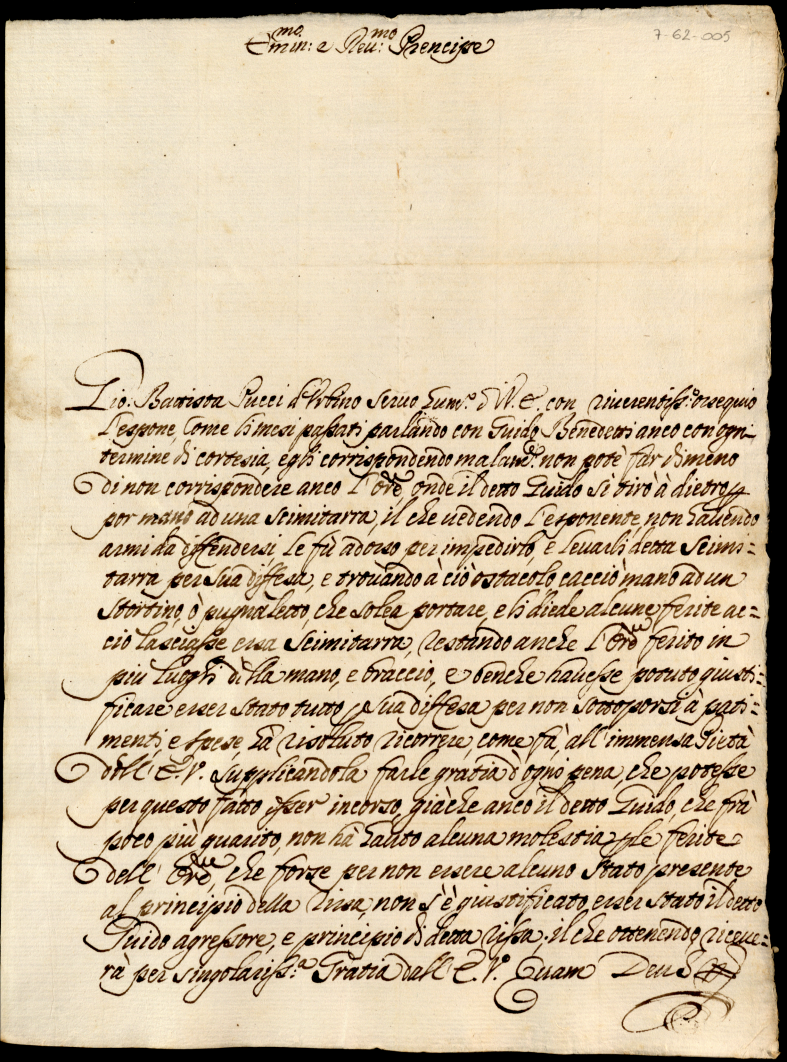 7-62-005
Emin:mo e Reu:mo Prencipe
Gio: Battista Pucci d'Urbino seruo hum.o d V. E. con riuerentiss:o ossequio
l'espone, come li mesi passati parlando con Guido Benedetti anco con ogni
termine di cortesia, egli corrispondendo malam.te non potè far dimeno
di non corrispondere anco l'Ore, onde il detto Guido si tirò à dietro p
por mano ad una Scimitarra, il che uedendo l'esponente, non hauendo
armi da diffendersi le fù adosso per impedirlo, e leuarli detta Scimi=
tarra per sua diffesa, e trouando à ciò ostacolo, cacciò mano ad un
stortino, ò pugnaletto, che solea portare, e li diede alcune ferite ac=
ciò lasciasse essa Scimitarra, restando anche l'Ore ferito in
più luoghi della mano, e braccio, e benche hauesse potuto giusti=
ficare esser stato tutto p sua diffesa per non sottoporsi à pati=
menti, e spese, hà risoluto ricorrere, come fà, all'immensa Pietà
dell'E. V. supplicandola farle gratia d'ogni pena, che potesse
per questo fatto esser incorso, già che anco il detto Guido, che frà
poco più guarito, non hà hauto alcuna molestia p le ferite
dell'Ore, che forse per non essere alcuno stato presente
al principio della rissa, non s'è giustificato esser stato il detto
Guido agressore, e principio di detta rissa; il che ottenendo riceue=
rà per singolariss:a Gratia dall'E. V. Quam Deus